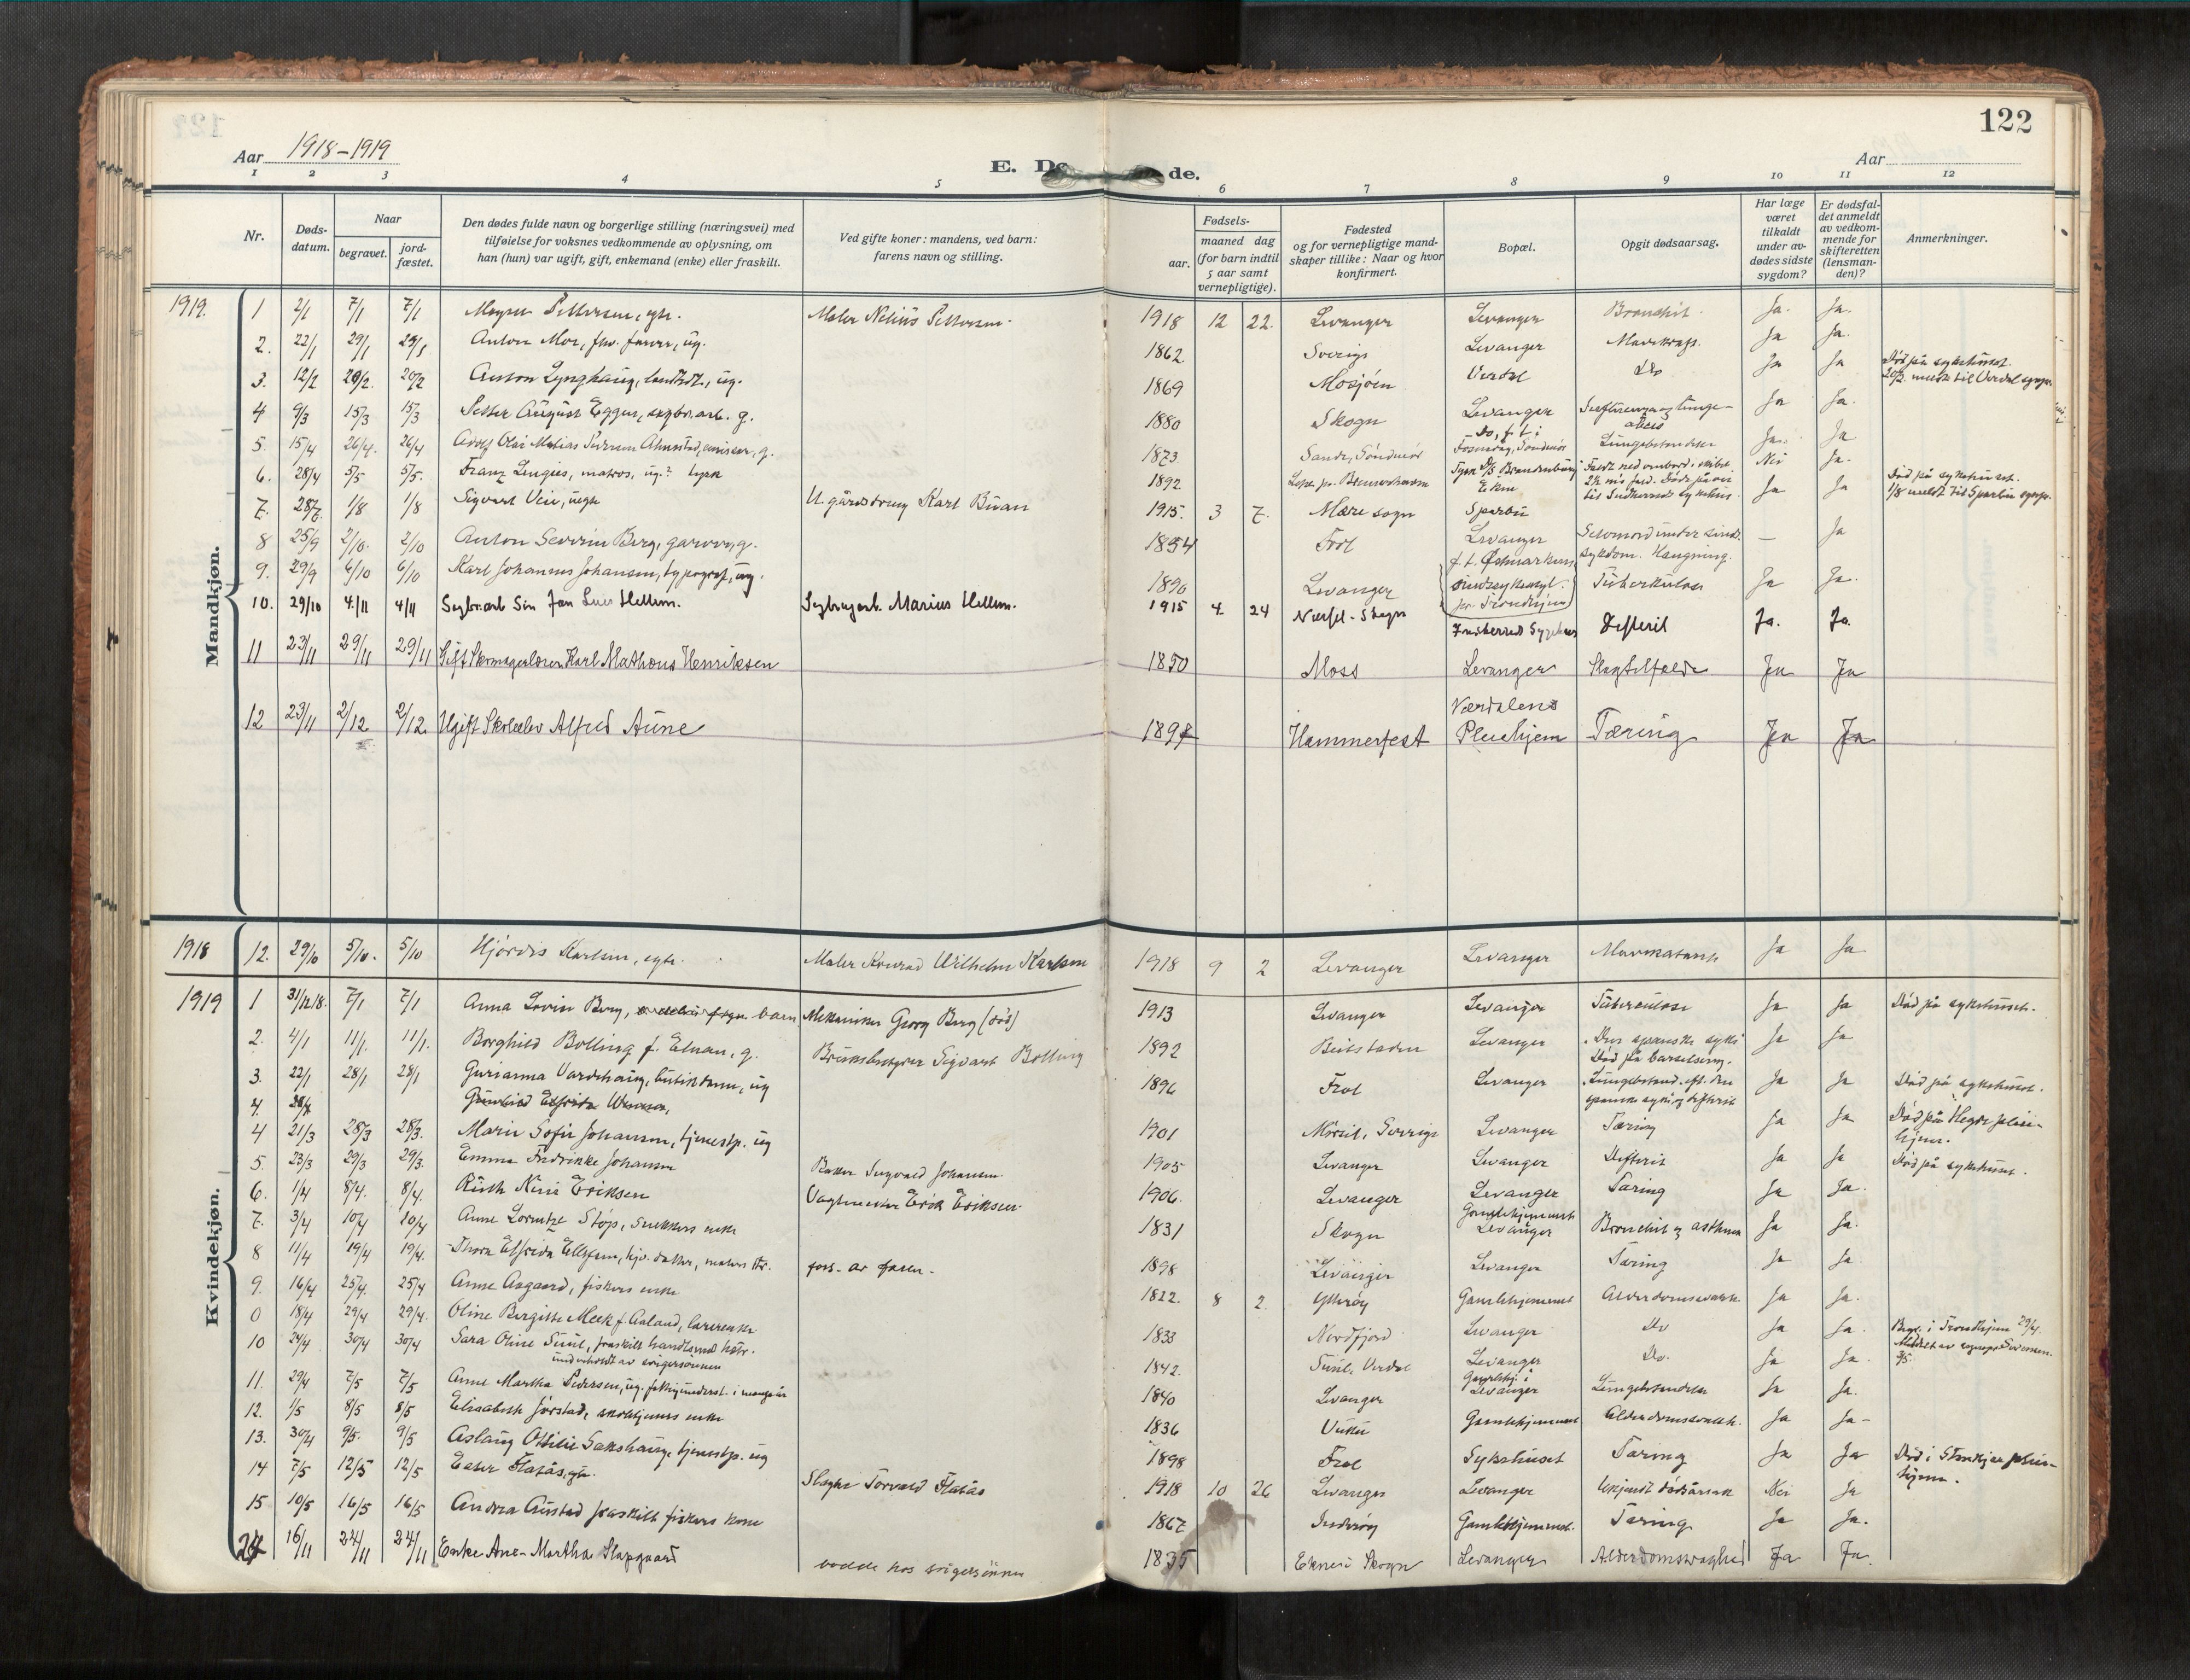 122
Aar 1918-1919
E. Dø de.
Aar
1 2 3 4 5 6 7 8 9 10 11 12
Nr.
Døds-
datum.
Naar
begravet.
jord-
fæstet.
Den dødes fulde navn og borgerlige stilling (næringsvei) med
tilføielse for voksnes vedkommende av oplysning, om
han (hun) var ugift, gift, enkemand (enke) eller fraskilt.
Ved gifte koner: mandens, ved barn:
farens navn og stilling.
Fødsels-
aar.
maaned dag
(for barn indtil
5 aar samt
vernepligtige).
Fødested
og for vernepligtige mand-
skaper tillike: Naar og hvor
konfirmert.
Bopæl.
Opgit dødsaarsag.
Har læge
været
tilkaldt
under av-
dødes sidste
sygdom?
Er dødsfal-
det anmeldt
av vedkom-
mende for
skifteretten
(lensman-
den)?
Anmerkninger.
Mandkjøn.
1919. 1 2/1 7/1 7/1 Pettersen, egte. Maler Nelius Pettersen. 1918 12 22. Levanger Levanger Bronchit. Ja. Ja.
2. 22/1 29/1 29/1 Anton Moe, fhv. farver, ug. 1862. Sverige Levanger Mavekræft. Ja Ja.
3. 12/2 20/2. 20/2 Anton Lynghaug, landhdl., ug. 1869 Mosjøen Verdal Do Ja Ja Død på sykehuset.
20/2. meldt til Verdal sogn
4 9/3 15/3 15/3 Petter August Egger, sagbr.arb. g. 1880 Skogn Levanger Ja Ja.
5. 15/4 26/4. 26/4 Adolf Olai Matias Pedersen g. 1873. Sande, Söndmör Do, f. t. i Lungebetændelse Ja. Ja
6. 28/4 5/5 5/5. Franz Lingies, matros, ug.? tysk 1892 Tysk D/S Brandenburg Faldt ned ombord i skibet. Nei Ja.
7. 28/7. 1/8 1/8 Sigvart Veie, uegte U. gårdsdreng Karl Buan 1915. 3 7. Mære sogn Ekne
Sparbu Ja Ja Død på sykehuset.
1/8 meldt til Sparbu
8 25/9 2/10. 2/10 Anton Severin Berg, garver, g. 1854 Frol Levanger Selvmord under sinds
sykdom. Hængning. — Ja
9. 29/9 6/10 6/10 Karl Johannes Johansen, typograf, ug. 1890 Levanger f. t. Østmarkens
sindssykeasyl.
pr. Trondhjem Tuberkulose Ja Ja.
10. 29/10 4./11 4/11 Sagbr.arb. Søn Jan Hellem. Sagbrugarb. Marius Hellem. 1915 4. 24 Skogn Innherreds Sygehus Difterit Ja. Ja.
11 23/11 29/11 29/11 Gift Skomagerlærer Karl Mathæus Henriksen 1850 Moss Levanger Slagtilfælde Ja Ja
12 23/11 2/12 2/12. Ugift Skoleelev Alfred Aune 1897 Hammerfest Værdalens
Pleiehjem Tæring Ja Ja
Kvindekjøn.
1918 12. 29/10 5/10. 5/10 Hjördis Karlsen, egte. Maler Konrad Wilhelm Karlsen 1918 9 2 Levanger Levanger Mavekatarrh Ja Ja
1919 1 31/12 18. 7/1 7/1 Anna Lovise Berg, barn Mekaniker Georg Berg (död) 1913 Levanger Levanger Tuberculose Ja Ja Död på sykehuset.
2. 4/1 11/1. 11/1. Borghild Bolling f. Elnan, g. Bruksbestyrer Sigvart Bolling 1892 Beitstaden Levanger Den spanske syke
Død på barselseng. Ja Ja
3. 22/1 28/1 28/1 Gurianna Vardehaug, butikdame, ug 1896 Frol Levanger Lungebetænd. eft. den
spanske syke og difterit Ja Ja Död på sykehuset.
4.
4 21/3 28/3 28/3. Marie Sofie Johansen, tjenestp. ug 1901 Mörsil, Sverige Levanger Tæring Ja Ja Död på Hegre pleie-
hjem.
5. 23/3 29/3 29/3. Emma Fredrikke Johansen Baker Ingvald Johansen 1905 Levanger Levanger Difterit Ja Ja Död på sykehuset.
6. 1/4 8/4. 8/4. Ruth Nini Eriksen Vagtmester Erik Eriksen 1906. Levanger Levanger Tæring Ja Ja.
7. 3/4 10/4 10/4 Anne Lorentze Stöp, snekkers enke 1831 Skogn Gamlehjemmet
Levanger Bronchit og asthma Ja Ja.
8 11/4 19/4 19/4. Thora Elfrida Ellefsen, fors. av faren. 1898 Levanger Levanger Tæring Ja Ja.
9. 16/4 25/4. 25/4 Anne Aagaard, fiskers enke 1822. 8 2. Ytterøy Gamlehjemmet Alderdomssvakh. Ja Ja.
0 18/4 29/4 29/4. Oline Bergitte Meek f. Aaland, lærerenke 1833 Nordfjord Levanger Do Ja Ja. Begr. i Trondhjem 29/4.
10 24/4 30/4 30/4 Sara Oline Tuul, fraskilt
underholdt av svigersønnen 1842. Tuul, Verdal Levanger Do. Ja Ja.
11. 29/4 7/5 7/5 Anne Martha Pedersen, ug. fattigunderst. i mange år 1840 Levanger Gamlehj. i
Levanger Lungebetændelse Ja Ja.
12. 1/5 8/5 8/5 Elisabeth Jörstad, enke 1836 Vuku Gamlehjemmet Alderdomssvakh. Ja Ja-
13. 30/4 9/5. 9/5 Aslaug Ottilie Sakshaug, tjenestp. ug 1898 Frol Sykehuset Tæring Ja Ja Död i Stenkjær pleie-
hjem.
14 7/5 12/5 12/5 Ester Flatås, egte. Slagter Torvald Flatås 1918 10 26 Levanger Levanger Ukjendt dödsårsak Nei Ja
15 10/5 16/5 16/5 Andrea Aunstad fraskilt fiskers kone 1867 Inderøy Gamlehjemmet. Tæring Ja Ja.
24 16/11 24/11 24/11 Enke Ane-Martha Slapgaard bodde hos svigersönnen 1835 Eknes i Skogn Levanger Alderdomsvaghed Ja Ja.